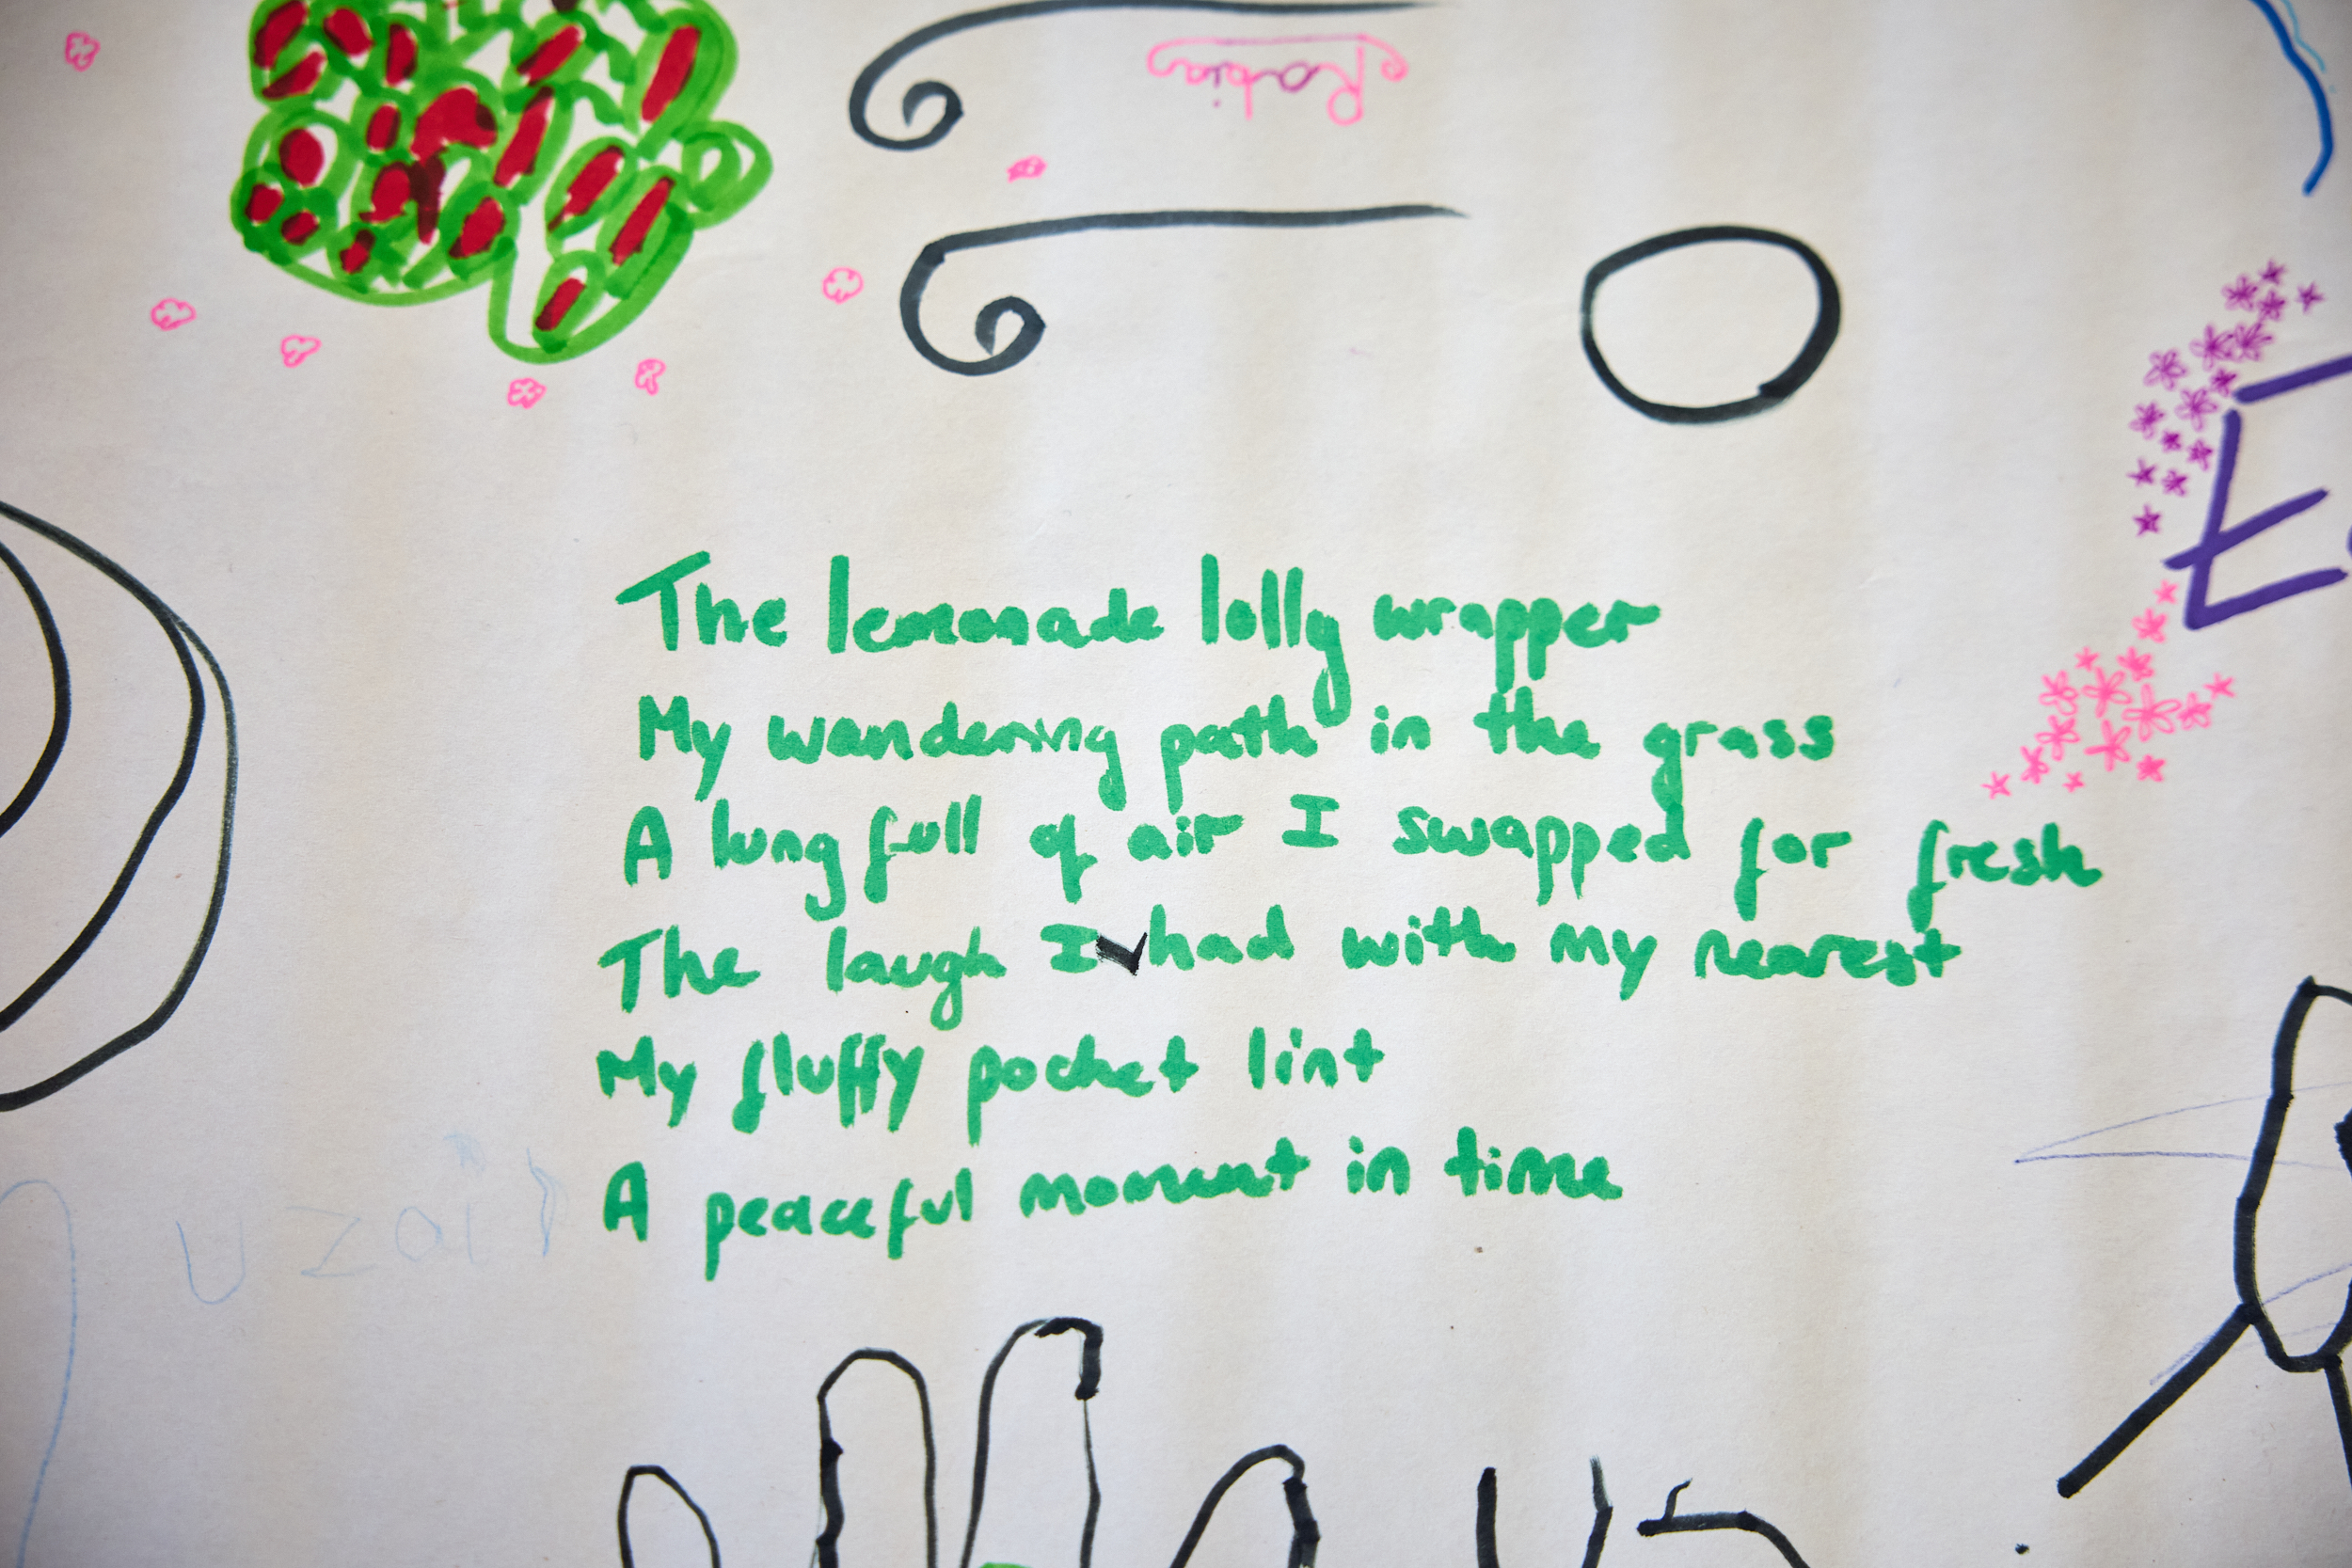 Rabia
The lemonade lolly wrapper
My wandering path in the grass
A lung full of air I swapped for fresh
The laugh I had with my nearest
My fluffy pocket lint
A peaceful moment in time
uzair
E